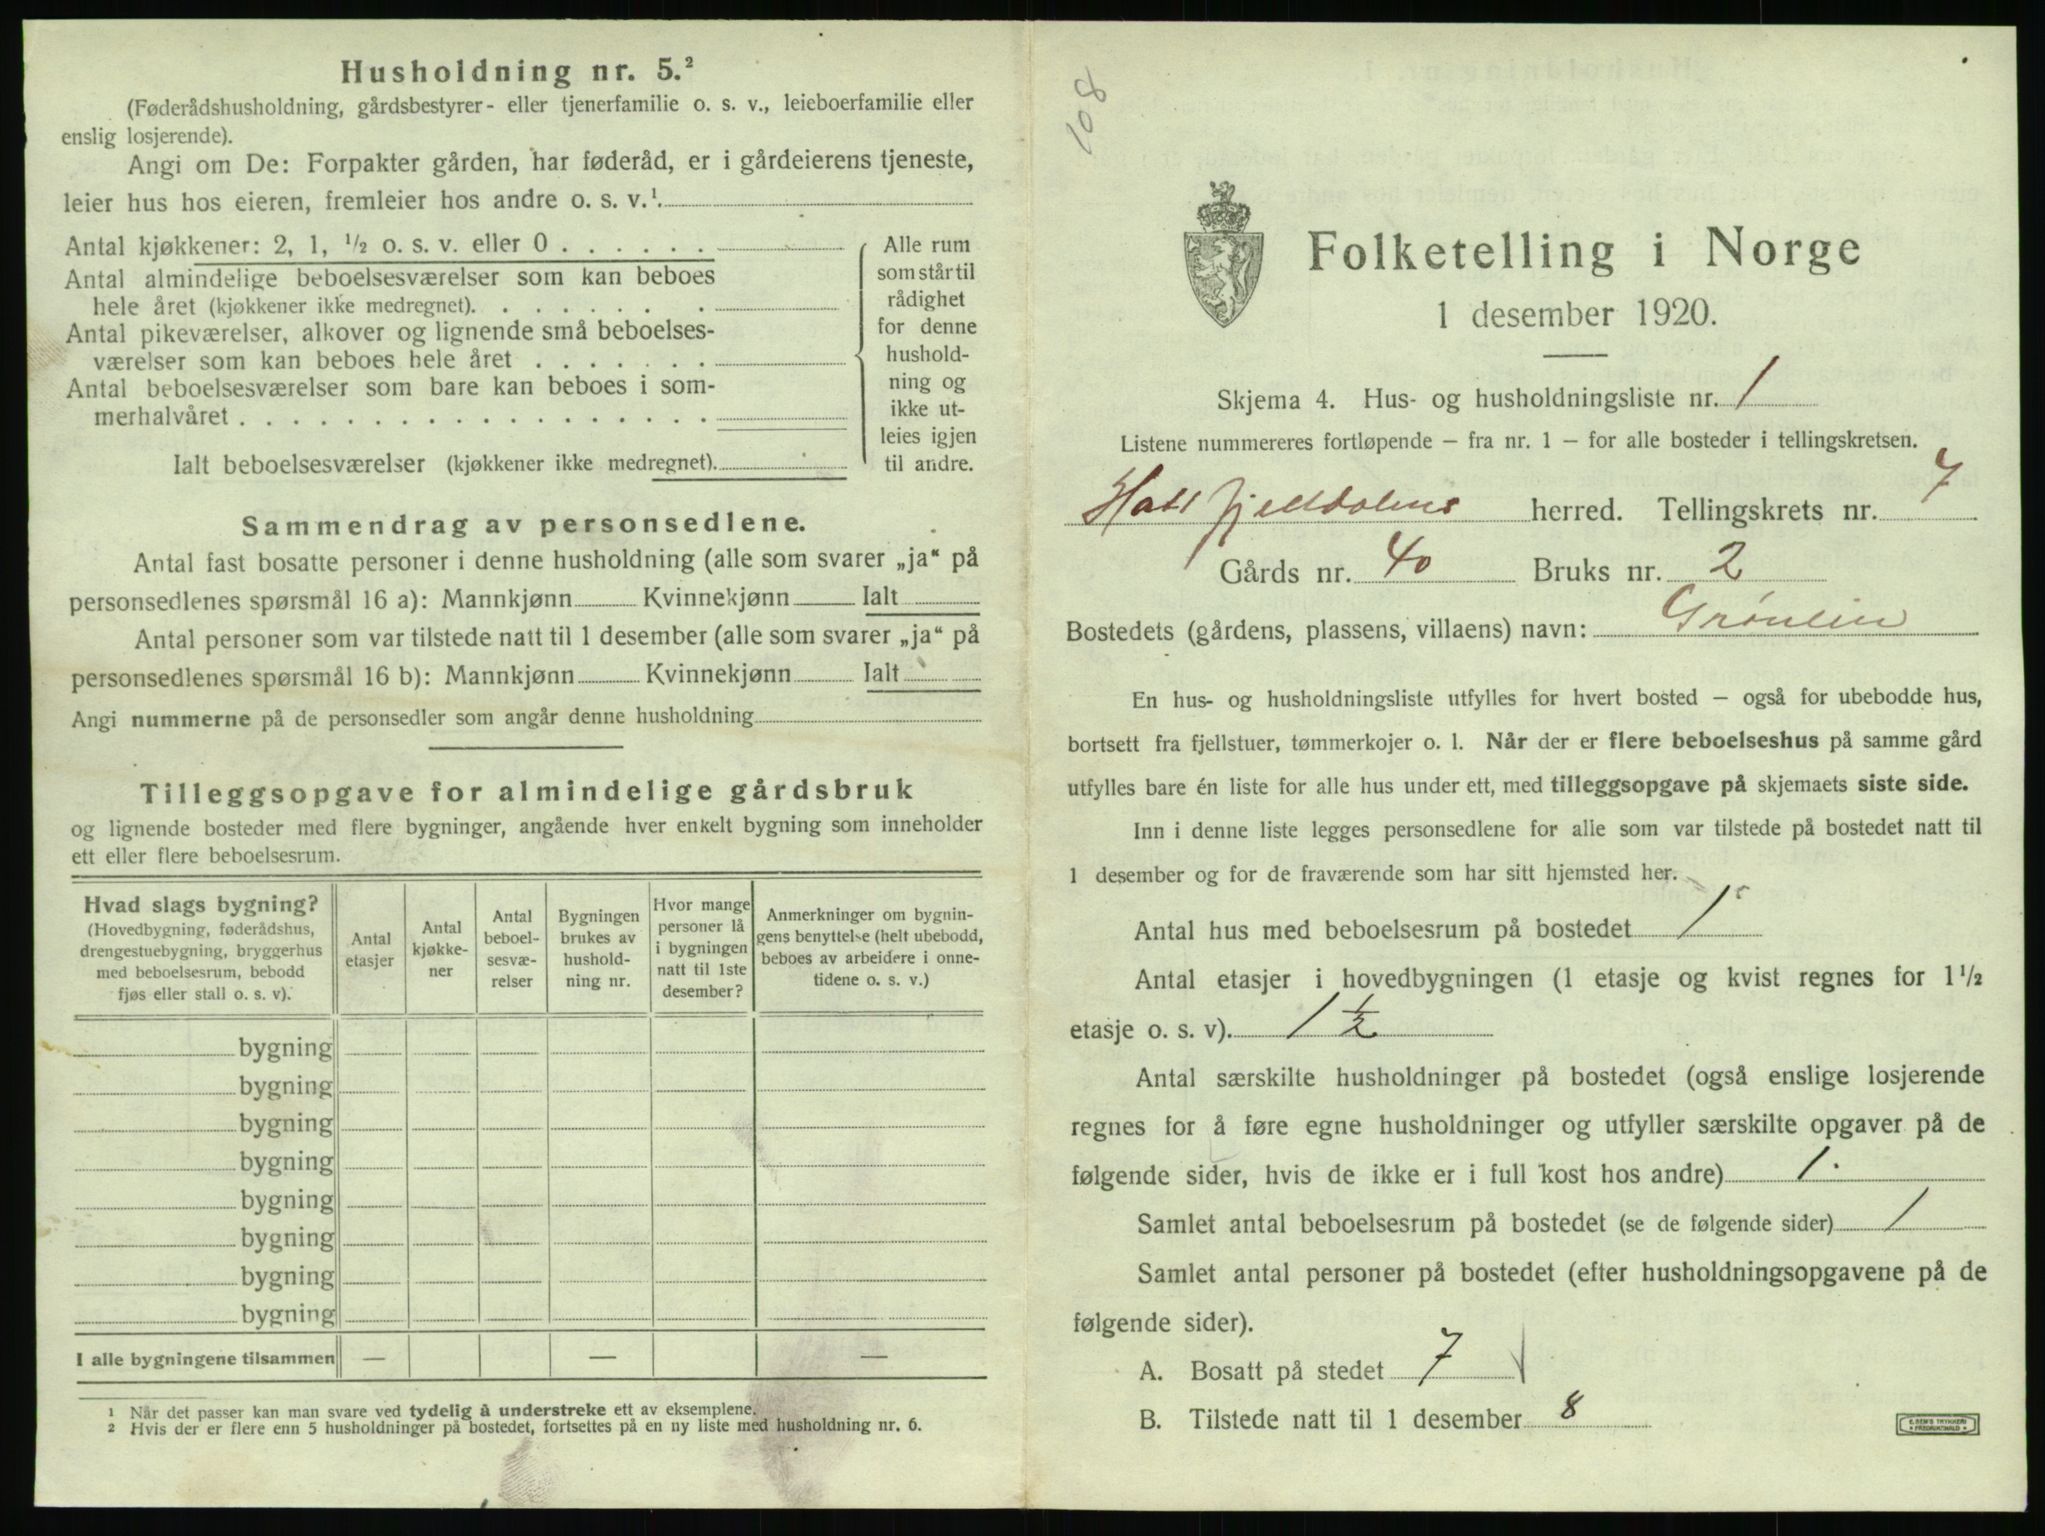 Husholdning nr. 5.²
(Føderådshusholdning, gårdsbestyrer- eller tjenerfamilie o. s. v., leieboerfamilie eller
enslig losjerende).
Angi om De: Forpakter gården, har føderåd, er i gårdeierens tjeneste,
leier hus hos eieren, fremleier hos andre o. s. v.¹.
Antal kjøkkener: 2, 1, ½ o. s. v. eller 0 . . . . . .
Antal almindelige beboelsesværelser som kan beboes
hele året (kjøkkener ikke medregnet). . . . . . . .
Antal pikeværelser, alkover og lignende små beboelses-
værelser som kan beboes hele året . . . . . . .
Antal beboelsesværelser som bare kan beboes i som-
merhalvåret . . . . . . . . . . . . . . . . . .
Ialt beboelsesværelser (kjøkkener ikke medregnet).
Alle rum
som står til
rådighet
for denne
hushold-
ning og
ikke ut-
leies igjen
til andre.
Sammendrag av personsedlene.
Antal fast bosatte personer i denne husholdning (alle som svarer „ja“ på
personsedlenes spørsmål 16 a): Mannkjønn Kvinnekjønn Ialt
Antal personer som var tilstede natt til 1 desember (alle som svarer „ja“ på
personsedlenes spørsmål 16 b): Mannkjønn Kvinnekjønn Ialt
Angi nummerne på de personsedler som angår denne husholdning
Tilleggsopgave for almindelige gårdsbruk
og lignende bosteder med flere bygninger, angående hver enkelt bygning som inneholder
ett eller flere beboelsesrum.
Hvad slags bygning?
(Hovedbygning, føderådshus,
drengestuebygning, bryggerhus
med beboelsesrum, bebodd
fjøs eller stall o. s. v).
Antal
etasjer
Antal
kjøkke-
ner
Antal
beboel-
sesvæ-
relser
Bygningen
brukes av
hushold-
ning nr.
Hvor mange
personer lå
i bygningen
natt til 1ste
desember?
Anmerkninger om bygnin-
gens benyttelse (helt ubebodd,
beboes av arbeidere i onne-
tidene o. s. v.)
bygning
bygning
bygning
bygning
bygning
bygning
bygning
bygning
I alle bygningene tilsammen — — —
1 Når det passer kan man svare ved tydelig å understreke ett av eksemplene.
2 Hvis der er flere enn 5 husholdninger på bostedet, fortsettes på en ny liste med husholdning nr. 6.
108
Folketelling i Norge
1 desember 1920.
Skjema 4. Hus- og husholdningsliste nr. 1
Listene nummereres fortløpende — fra nr. 1 — for alle bosteder i tellingskretsen.
Hattfjelldalens herred. Tellingskrets nr. 7
Gårds nr. 40 Bruks nr. 2
Bostedets (gårdens, plassens, villaens) navn: Grønlien
En hus- og husholdningsliste utfylles for hvert bosted — også for ubebodde hus,
bortsett fra fjellstuer, tømmerkojer o. l. Når der er flere beboelseshus på samme gård
utfylles bare én liste for alle hus under ett, med tilleggsopgave på skjemaets siste side.
Inn i denne liste legges personsedlene for alle som var tilstede på bostedet natt til
1 desember og for de fraværende som har sitt hjemsted her.
Antal hus med beboelsesrum på bostedet 1
Antal etasjer i hovedbygningen (1 etasje og kvist regnes for 1½
etasje o. s. v). 1 ½
Antal særskilte husholdninger på bostedet (også enslige losjerende
regnes for å føre egne husholdninger og utfyller særskilte opgaver på de
følgende sider, hvis de ikke er i full kost hos andre) 1.
Samlet antal beboelsesrum på bostedet (se de følgende sider) 1
Samlet antal personer på bostedet (efter husholdningsopgavene på de
følgende sider).
A. Bosatt på stedet 7
B. Tilstede natt til 1 desember 8